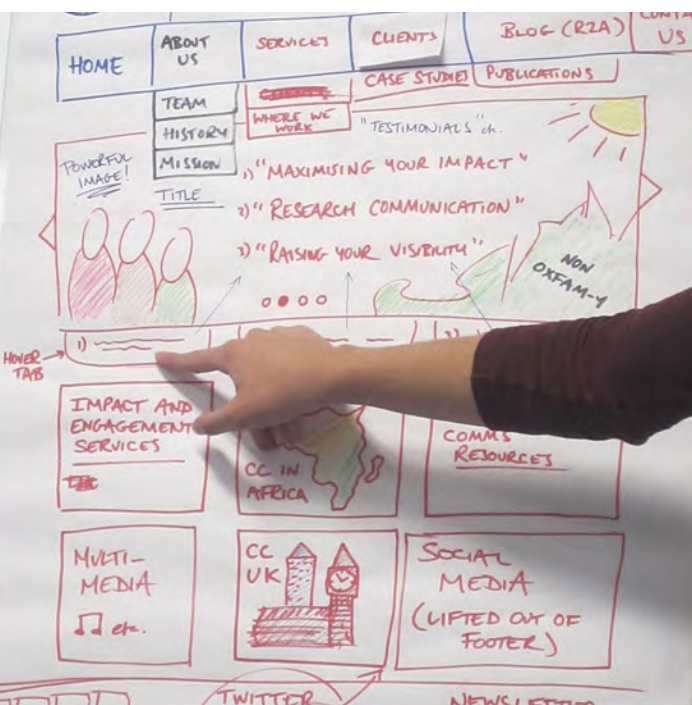 HOME
ABOUT
US
SERVICES
CLIENTS
BLOG (R2A)
CONTA
US
CASE STUDIES
PUBLICATIONS
TEAM
HISTORY
MISSION
WHERE WE
WORK
"TESTIMONIALS" ch.
POWERFUL
IMAGE!
TITLE
1) "MAXIMISING YOUR IMPACT"
2) "RESEARCH COMMUNICATION"
3) "RAISING YOUR VISIBILITY"
NON
OXFAM-Y
HOVER
TAB
1)
IMPACT AND
ENGAGEMENT
SERVICES
CC IN
AFRICA
COMMS
RESOURCES
MULTI-
MEDIA
etc.
CC
UK
SOCIAL
MEDIA
(LIFTED OUT OF
FOOTER)
TWITTER
NEWSLETTER